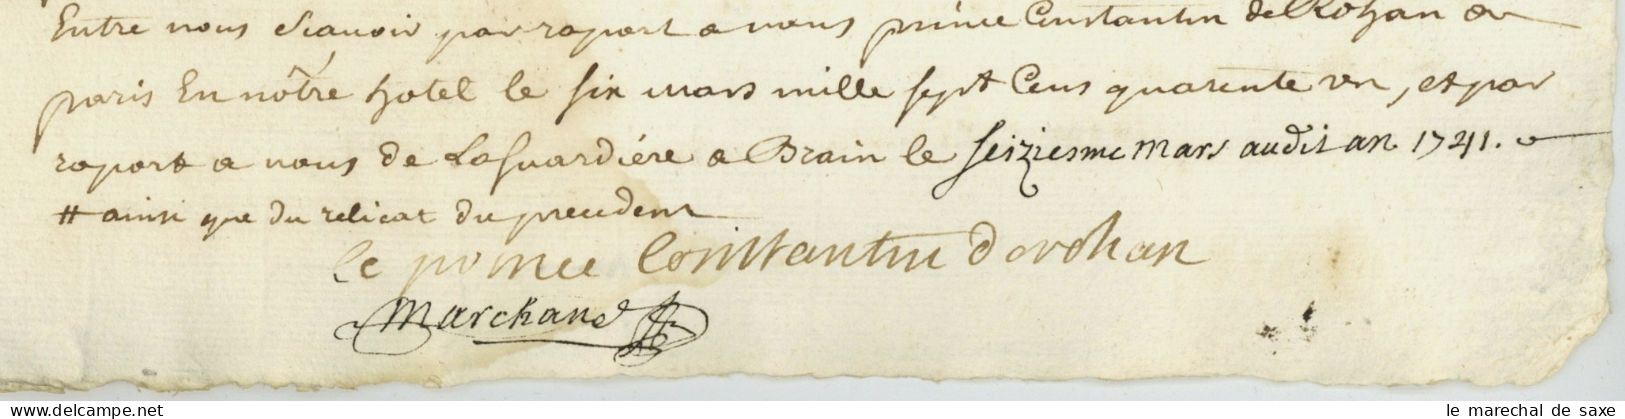 Entre nous Scavoir par raport a nous prince Constantin de Rohan a
paris En nôtre hotel le six mars mille sept Cens quarente un, et par
raport a nous de Laguardiére a Brain le seiziesme mars audit an 1741.
# ainsi que du relicat du precedent
le prince Constantin de rohan
Marchand
www.delcampe.net
le marechal de saxe